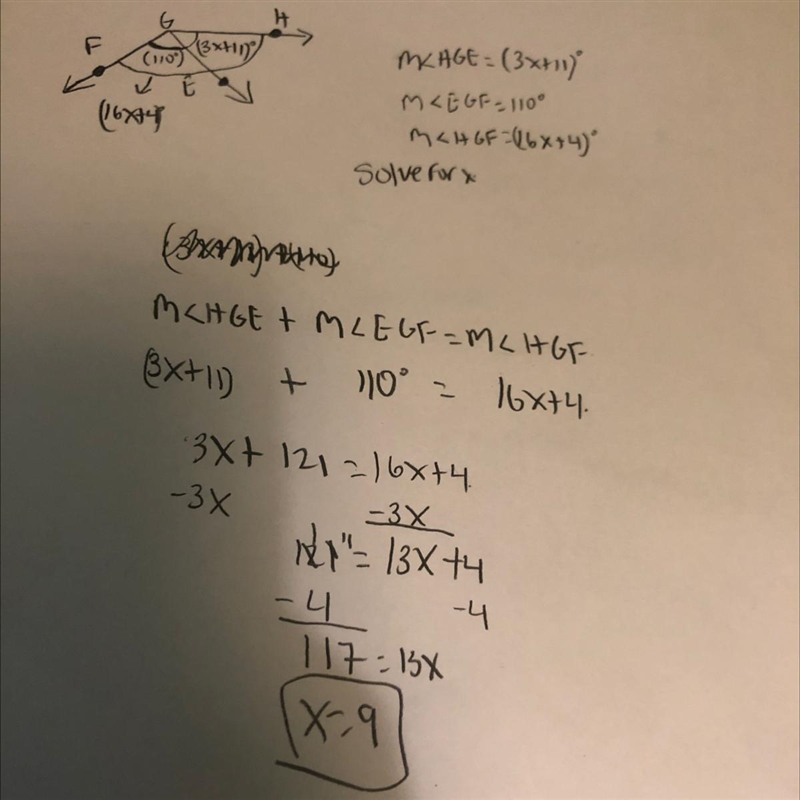 G H
F (110°) (3x+11)°
E
(16x+4)
m<HGE = (3x+11)°
m<EGF = 110°
m<HGF = (16x+4)°
Solve for x
m<HGE + m<EGF = m<HGF
(3x+11) + 110° = 16x+4.
3x + 121 = 16x+4
-3x -3x
121 = 13x+4
-4 -4
117 = 13x
x = 9